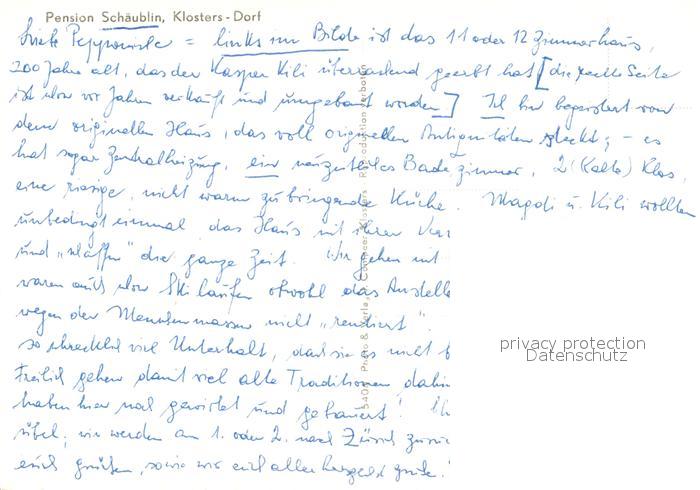 Pension Schäublin, Klosters-Dorf
links im Bilde ist das 11 oder 12 Zimmerhaus,
200 Jahre alt, das der Kaspar Kili überraschend geerbt hat [die rechte Seite
ist schon vor Jahren verkauft und umgebaut worden] Ich bin begeistert von
dem originellen Haus, das voll originellen Antiquitäten steckt; - es
hat sogar Zentralheizung, ein neuzeitliches Badezimmer, 2 (kalte) Klos,
eine riesige, nicht warm zu bringende Küche. Magdi u. Kili wollten
unbedingt einmal das Haus mit ihren
und die ganze Zeit. Wir gehen mit
waren auch schon Skilaufen obwohl das Anstelle
wegen der Menschenmassen nicht "rentiert".
so schrecklich viel Unterhalt, daß sie es nicht
Freilich gehen damit viel alte Traditionen dahin
haben hier mal gewirtet und gebauert!
übel; wir werden am 1. oder 2. nach Zürich
euch grüßen, sowie wir euch alle
privacy protection
Datenschutz